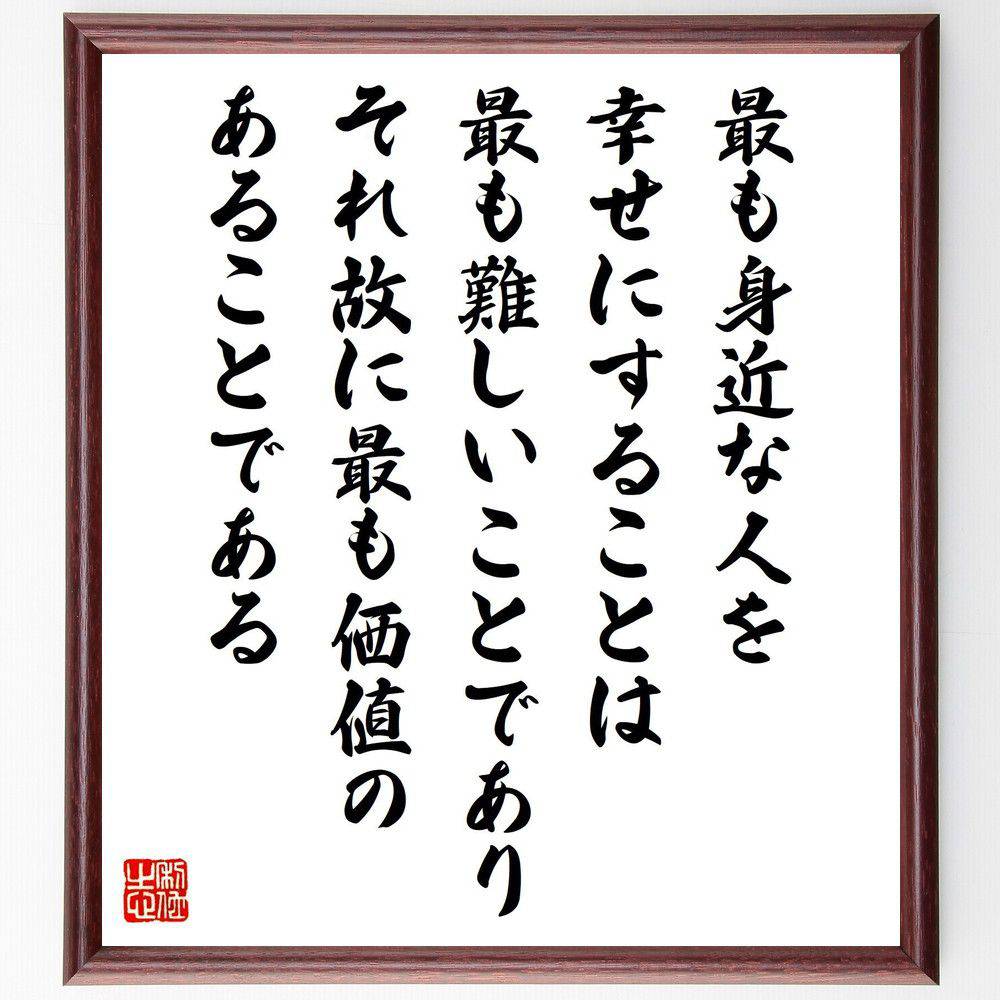 最も身近な人を
幸せにすることは
最も難しいことであり
それ故に最も価値の
あることである